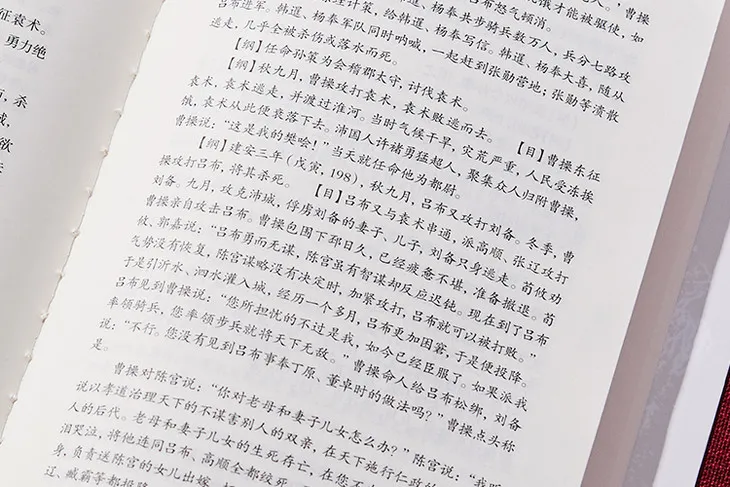 征袁术。
勇力绝
,杀
欲
曹操
饿才能被驱使,如
吕布怒气顿消。
杨奉共步骑兵数万人,兵分七路攻
计策,给韩暹、杨奉写信。韩暹、杨奉大喜,随从
吕布进军。韩暹、杨奉军队同时呐喊,一起赶到张勋营地;张勋等溃散
逃走,几乎全被杀伤或落水而死。
【纲】任命孙策为会稽郡太守,讨伐袁术。
【纲】秋九月,曹操攻打袁术,袁术败逃而去。 【目】曹操东征
袁术,袁术逃走,并渡过淮河。当时气候干旱,灾荒严重,人民受冻挨
饿,袁术从此便衰落下去。沛国人许褚勇猛超人,聚集众人归附曹操,
曹操说:“这是我的樊哙!”当天就任命他为都尉。
【纲】建安三年(戊寅,198),秋九月,吕布又攻打刘备。冬季,曹
操攻打吕布,将其杀死。 【目】吕布又与袁术串通,派高顺、张辽攻打
刘备。九月,攻克沛城,俘虏刘备的妻子、儿子,刘备只身逃走。荀攸劝
曹操亲自攻击吕布。曹操包围下邳日久,已经疲惫不堪,准备撤退。荀
攸、郭嘉说:“吕布勇而无谋,陈宫虽有智谋却反应迟钝。现在到了吕布
气势没有恢复,陈宫谋略没有决定时,加紧攻打,吕布就可以被打败。”
于是引沂水、泗水灌入城,经历一个多月,吕布更加困窘,于是便投降。
吕布见到曹操说:“您所担忧的不过是我,如今已经臣服了。如果派我
率领骑兵,您率领步兵就将天下无敌。”曹操命人给吕布松绑,刘备
说:“不行。您没有见到吕布事奉丁原、董卓时的做法吗?”曹操点头称
是。
曹操对陈宫说:“你对老母和妻子儿女怎么办?”陈宫说:“我听
说以孝道治理天下的不谋害别人的双亲,在天下施行仁政的
人的后代。老母和妻子儿女的生死存亡,在您不
泪哭泣,将他连同吕布、高顺全都绞死
身,负责送陈宫的女儿出嫁
辽、臧霸等都投降